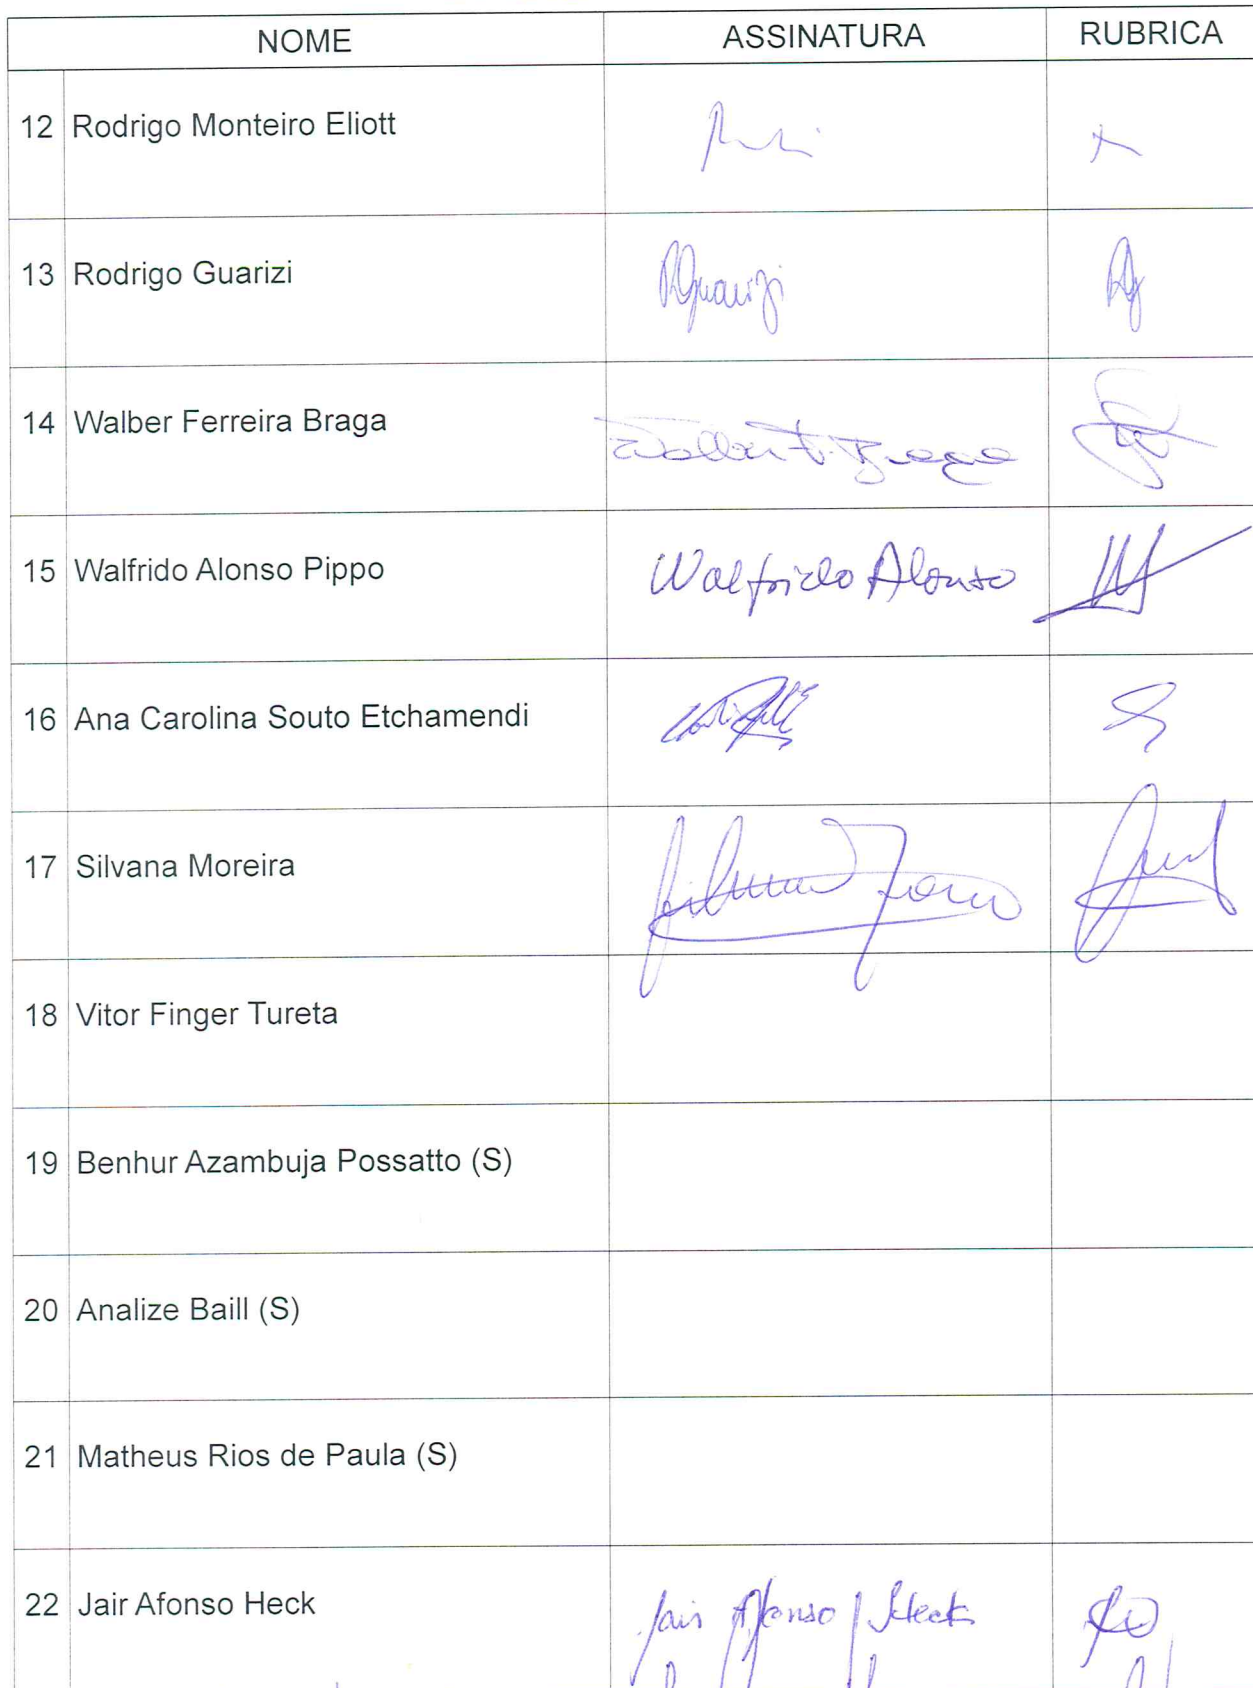 NOME ASSINATURA RUBRICA
12 Rodrigo Monteiro Eliott
13 Rodrigo Guarizi RGuarizi
14 Walber Ferreira Braga Walber F. Braga
15 Walfrido Alonso Pippo Walfrido Alonso
16 Ana Carolina Souto Etchamendi
17 Silvana Moreira
18 Vitor Finger Tureta
19 Benhur Azambuja Possatto (S)
20 Analize Baill (S)
21 Matheus Rios de Paula (S)
22 Jair Afonso Heck Jair Afonso Heck